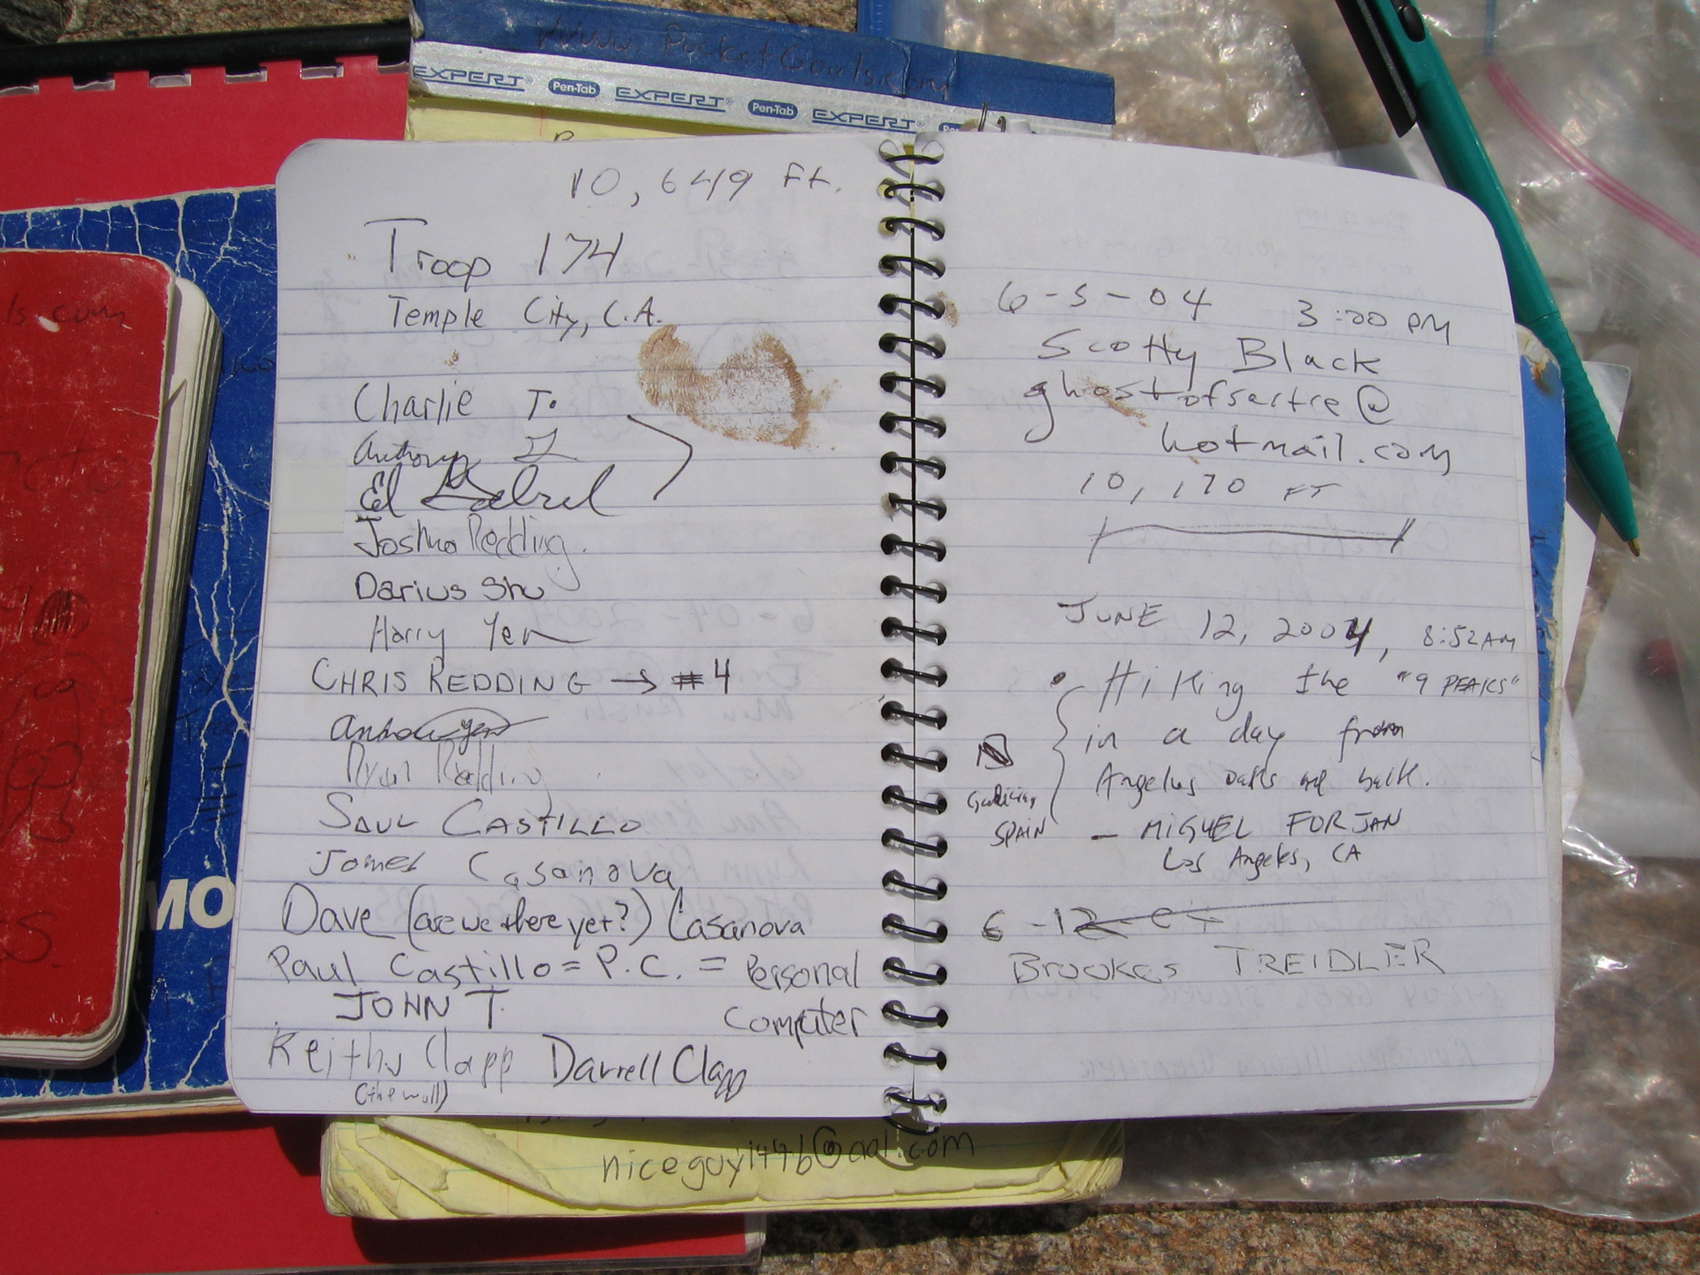 www.PocketGoals.com
EXPERT Pen-Tab EXPERT Pen-Tab EXPERT
10,649 ft.
Troop 174
Temple City, C.A.
Charlie T.
Anthony
El
Joshua Redding.
Darius Shu
Harry Yen
CHRIS REDDING → #4
Ryan Redding
SAUL CASTILLO
James Casanova
Dave (are we there yet?) Casanova
Paul Castillo = P.C. = Personal
Computer
JOHN T.
Keithy Clapp Darrell Clapp
(the wall)
6-5-04 3:00 PM
Scotty Black
ghostofsartre@
hotmail.com
10,170 FT
JUNE 12, 2004, 8:52 AM
Hiking the "9 PEAKS"
in a day from
Angelus oaks and back.
SPAIN
- MIGUEL FORJAN
Los Angeles, CA
6-12-04
Brookes TREIDLER
niceguy1496@aol.com
MO